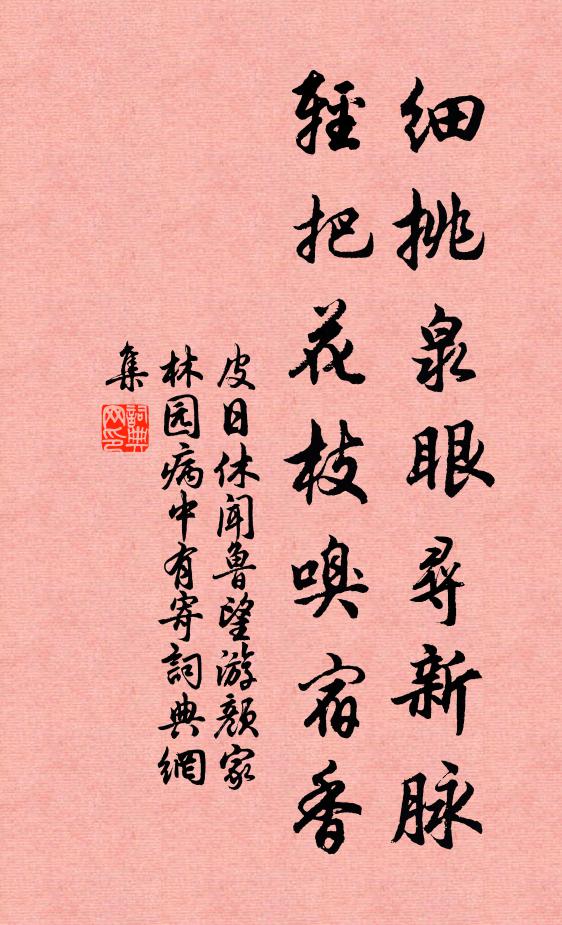 细挑泉眼尋新脉
輕把花枝嗅宿香
皮日休闻鲁望游颜家
林园病中有寄詞典網
集
詞典
网印